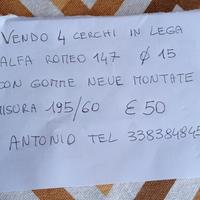 VENDO 4 CERCHI IN LEGA
ALFA ROMEO 147 Ø 15
CON GOMME NEVE MONTATE
MISURA 195/60 € 50
ANTONIO TEL 338384845